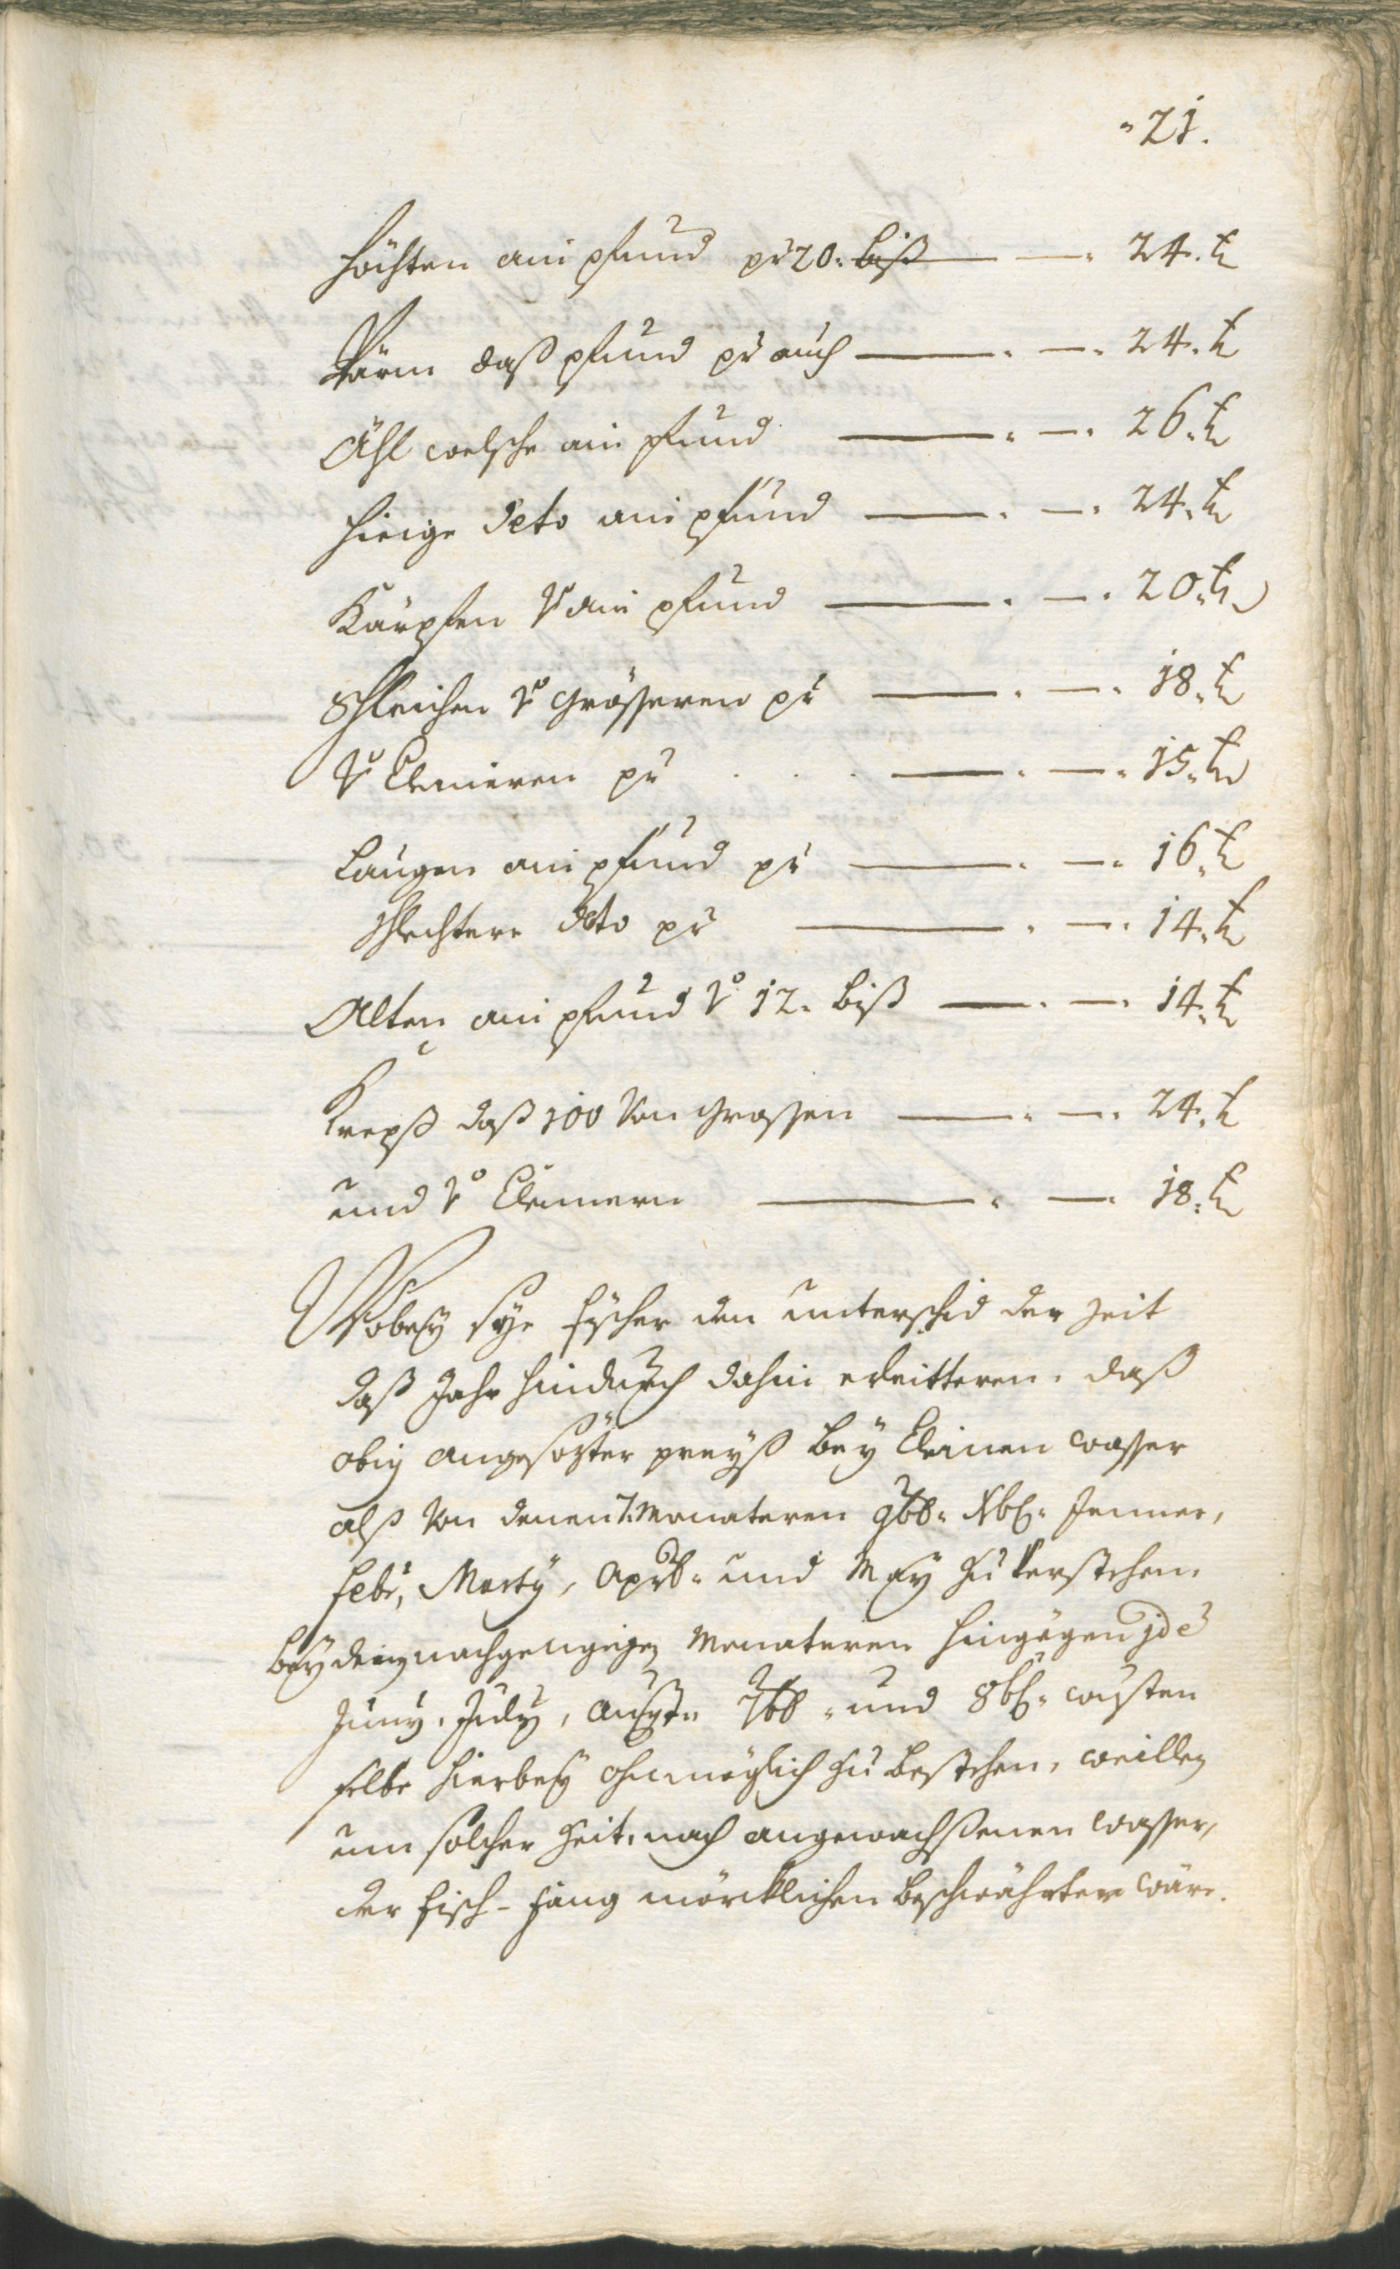 21.
Höchten ain pfund pr 20. biß — — 24. kr
Pärm daß pfund pr auch — — 24. kr
Ähl welsche ain pfund — — 26. kr
hieige deto ain pfund — — 24. kr
Kärpfen V ain pfund — — 20. kr
Schleichen Vo grösseren pr — — 18. kr
Vo kleineren pr . . . — — 15. kr
Laugen ain pfund pr — — 16. kr
schlechtere deto pr — — 14. kr
Alten ain pfund Vo 12. biß — — 14. kr
Krepß daß 100 von grossen — — 24. kr
und Vo kleinern — — 18. kr
Wobey sÿe fischer den unterschid der zeit
daß Jahr hindurch dahin erleitteren. daß
obig angesözter preyß bey kleinen wasser
alß von denen 7. Monateren 9bb. Xbr. Jenner,
Febr, Martÿ, Apr. und May zu verstehen.
bey denen nachgengigen Monateren hingegen jdē
Junÿ. Julÿ, Augst. 7bb. und 8br. wusten
selbe hierbey ohnmöglich zu bestehen, weillen
um solcher zeit, nach angewachßenen wasser,
der fisch-fang mörcklichen beschwährter wäre.